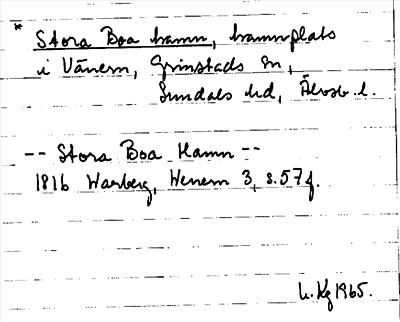 * Stora Boa hamn, hamnplats
i Vänern, Grinstads sn,
Sundals hd, Älvsb. l.
-- Stora Boa Hamn --
1816 Warberg, Wenern 3, s. 57 f.
L. Kg 1965.